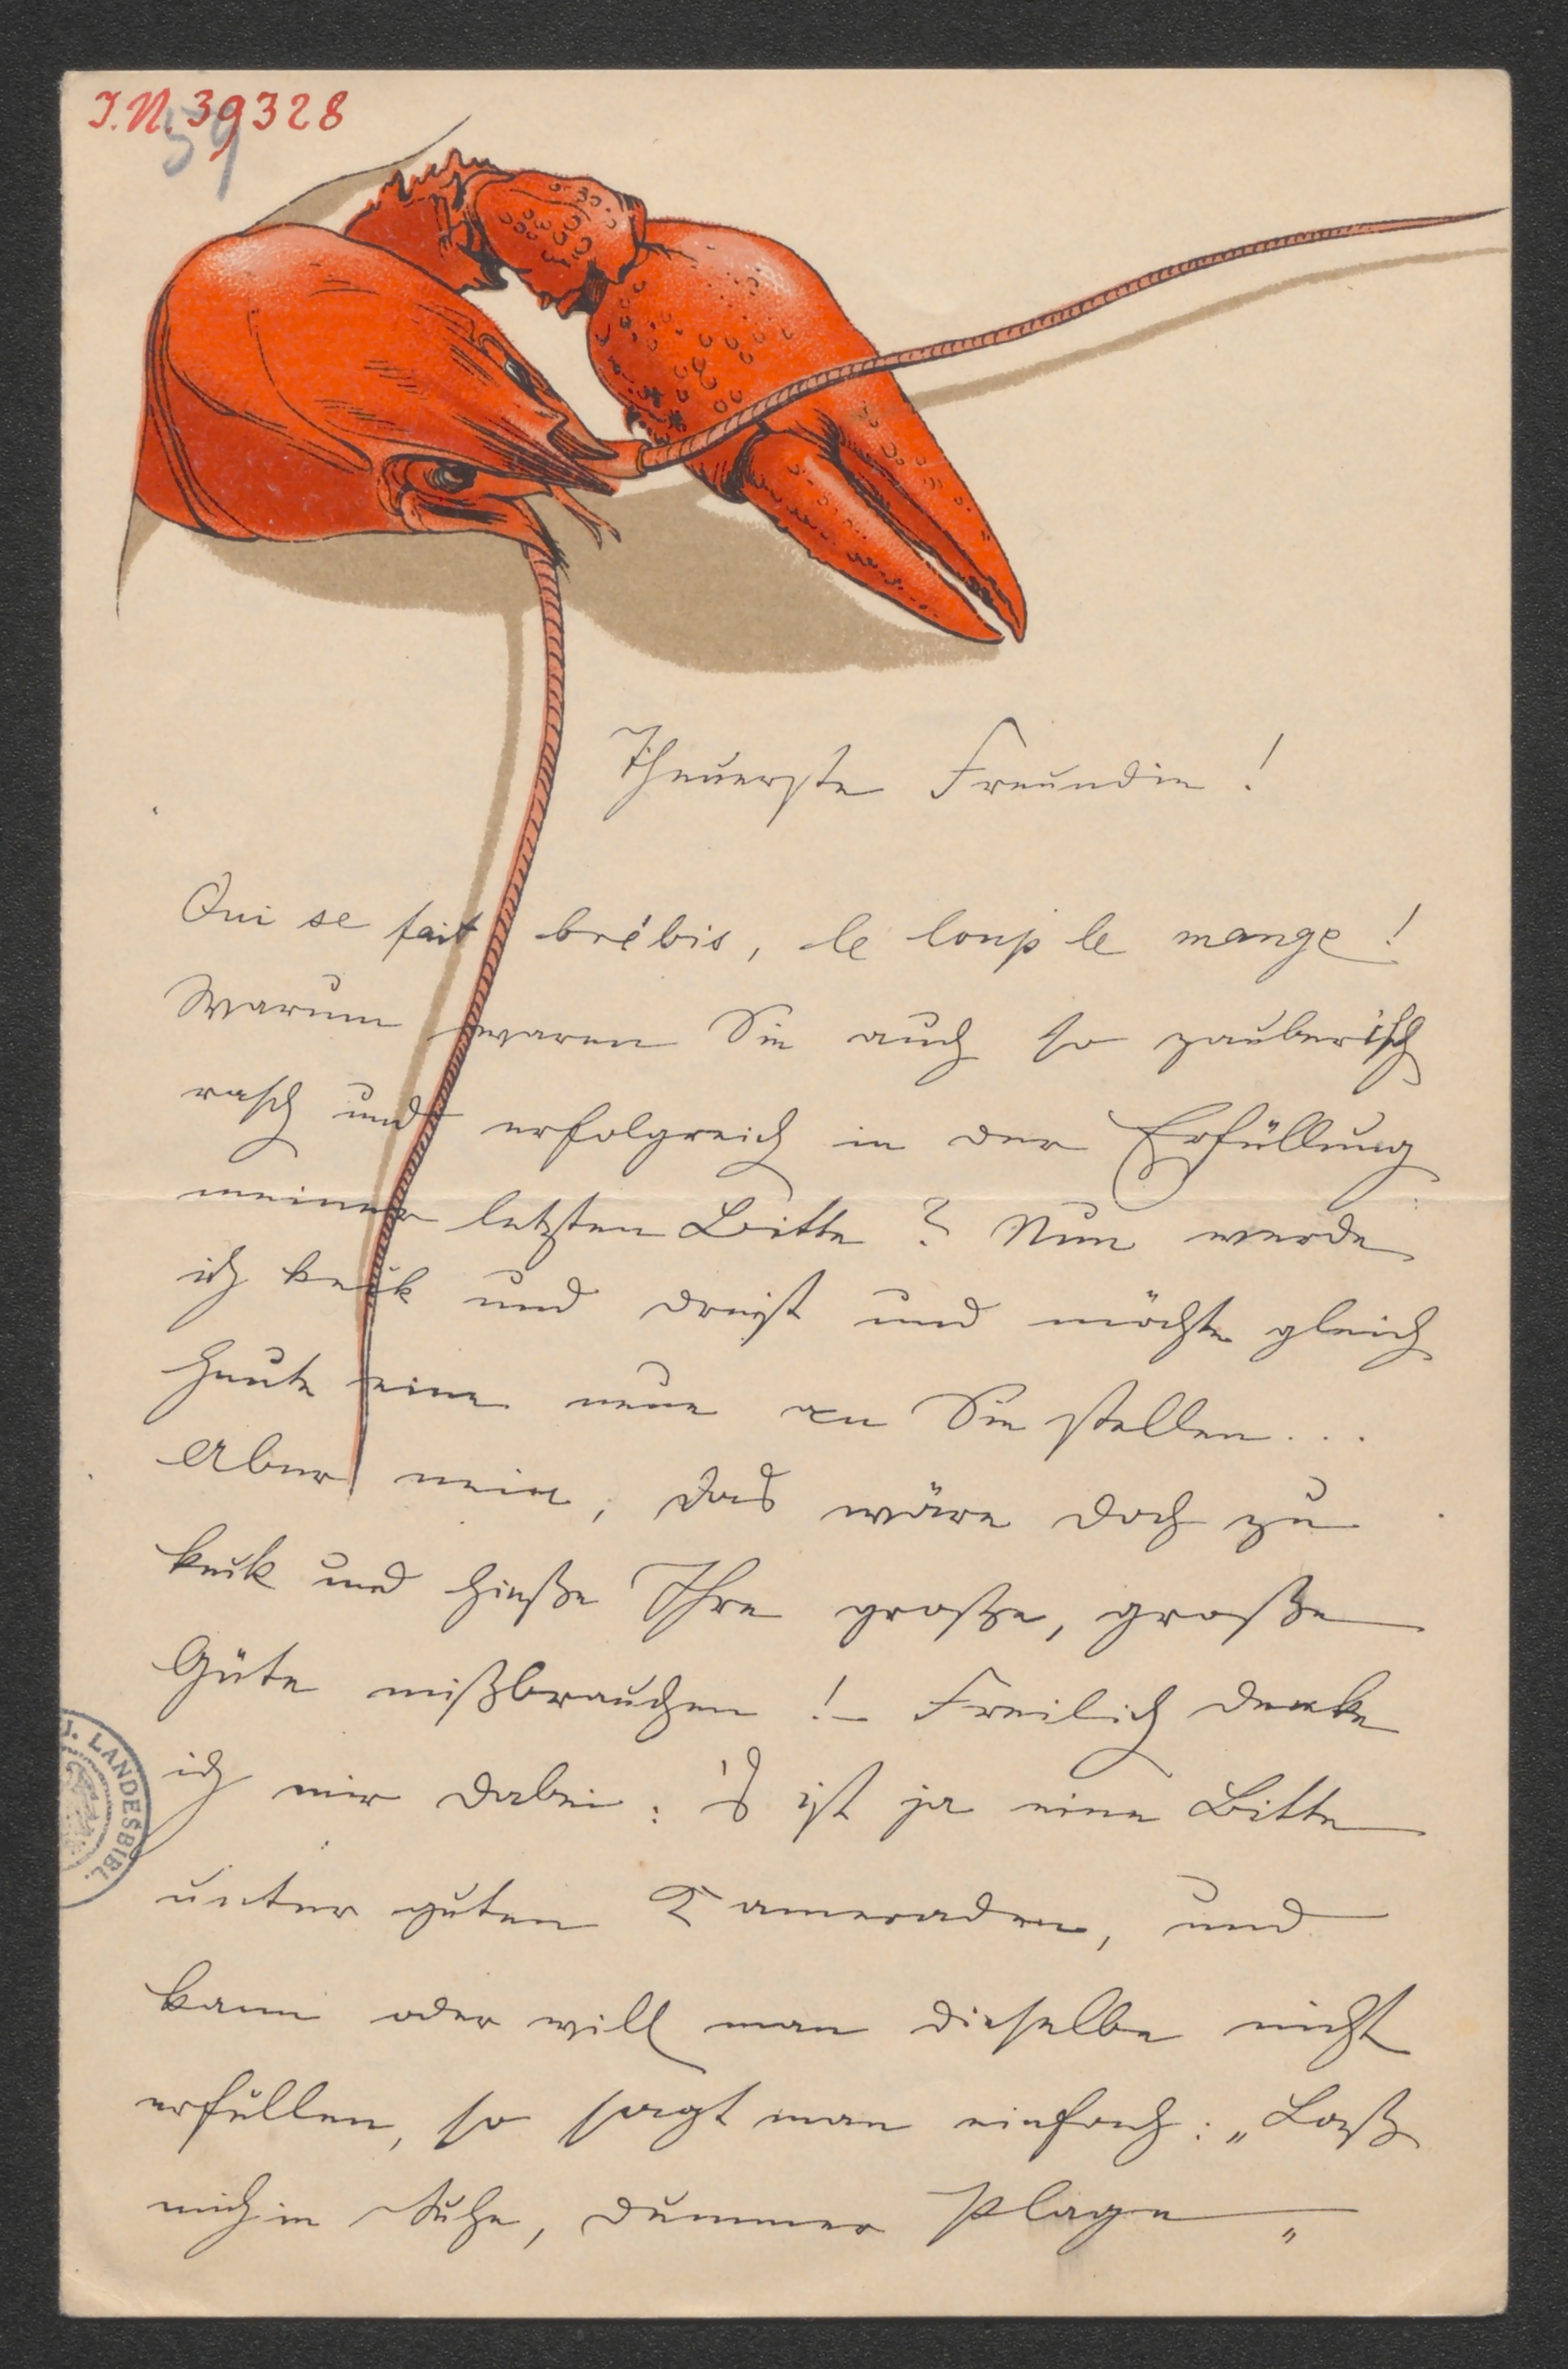 I.N. 39328
59
Theuerste Freundin!
Qui se fait brébis, le loup le mange!
Warum waren Sie auch so zauberisch
rasch und erfolgreich in der Erfüllung
meiner letzten Bitte? Nun werde
ich keck und dreist und möchte gleich
heute eine neue an Sie stellen...
Aber nein, das wäre doch zu
keck und hieße Ihre große, große
Güte mißbrauchen!– Freilich denke
ich mir dabei: 's ist ja eine Bitte
unter guten Kameraden, und
kann oder will man dieselbe nicht
erfüllen, so sagt man einfach: „Laß
mich in Ruhe, dummer Plage
LANDESBIBL.